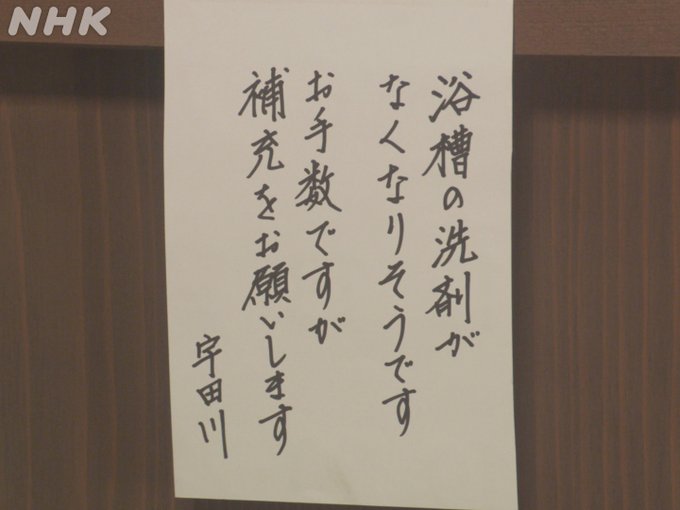 NHK
浴槽の洗剤が
なくなりそうです
お手数ですが
補充をお願いします
宇田川